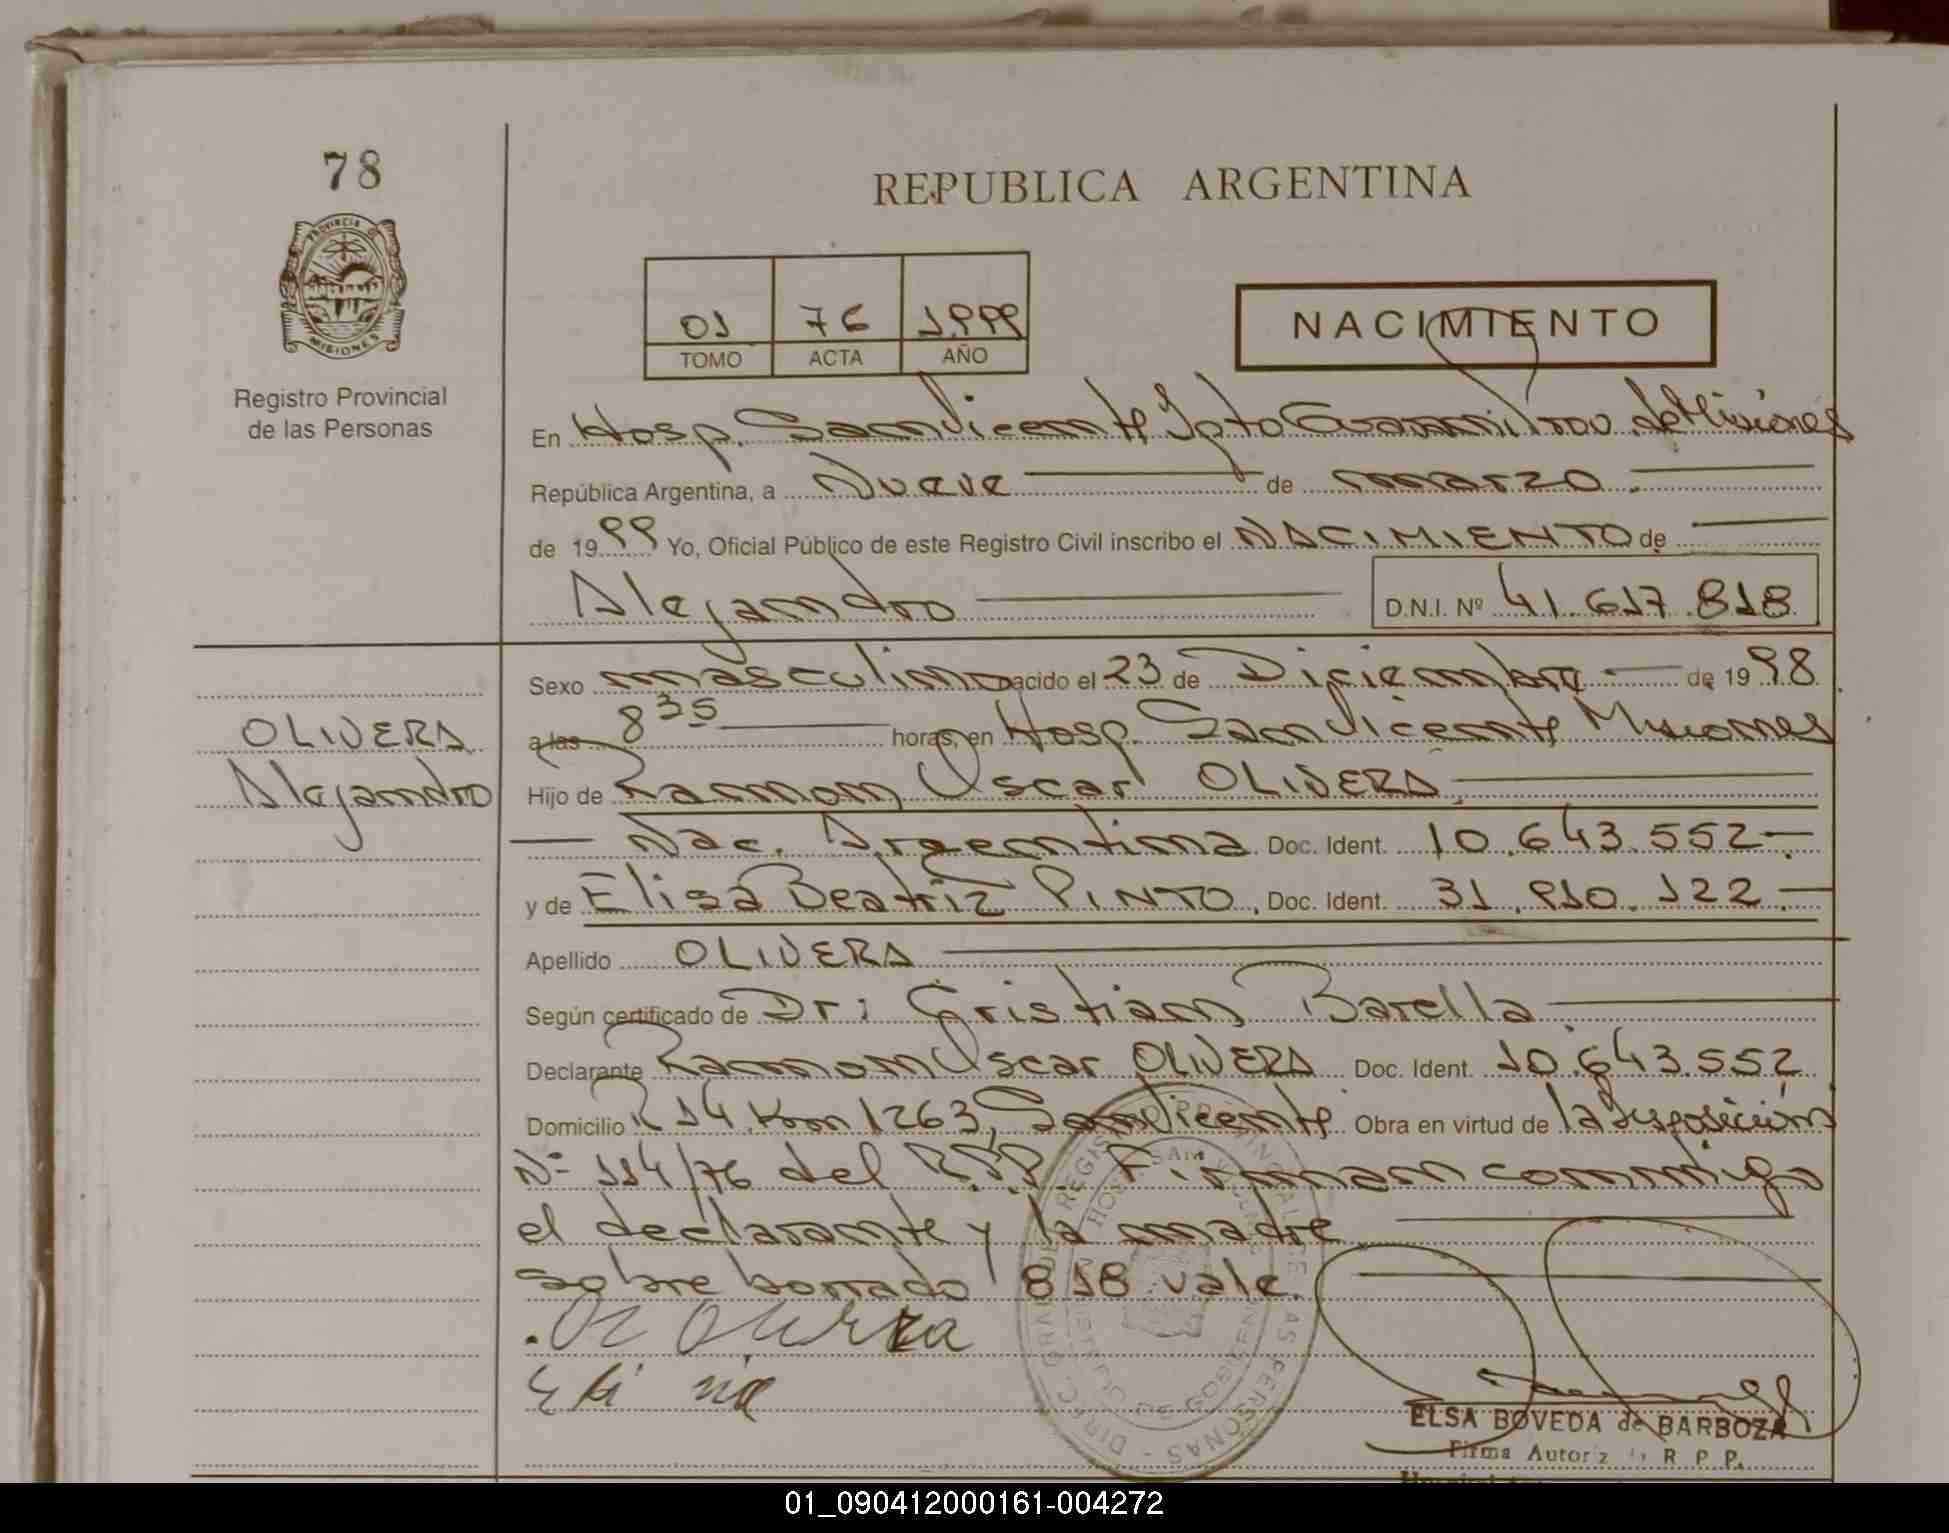 78
REPUBLICA ARGENTINA
PROVINCIA
MISIONES
Registro Provincial
de las Personas
01 76 1.999
TOMO ACTA AÑO
NACIMIENTO
En Hosp. San Vicente Dpto Guaraní Prov. de Misiones
República Argentina, a Nueve de marzo
de 1999 Yo, Oficial Público de este Registro Civil inscribo el NACIMIENTO de
Alejandro D.N.I. Nº 41.617.818
Sexo masculino nacido el 23 de Diciembre de 1998
OLIVERA
a las 8 35 horas, en Hosp. San Vicente Misiones
Alejandro
Hijo de Ramon Oscar OLIVERA
Nac. Argentina Doc. Ident. 10.643.552
y de Elisa Beatriz PINTO, Doc. Ident. 31.910.122
Apellido OLIVERA
Según certificado de Dr: Cristian Barella
Declarante Ramon Oscar OLIVERA Doc. Ident. 10.643.552
Domicilio R 14 Km 1263, San Vicente Obra en virtud de la Disposición
Nº 114/76 del R.P.P. Firman conmigo
el declarante y la madre
sobre borrado 818 vale.
ELSA BOVEDA de BARBOZA
Firma Autoriz R P P.
01_090412000161-004272